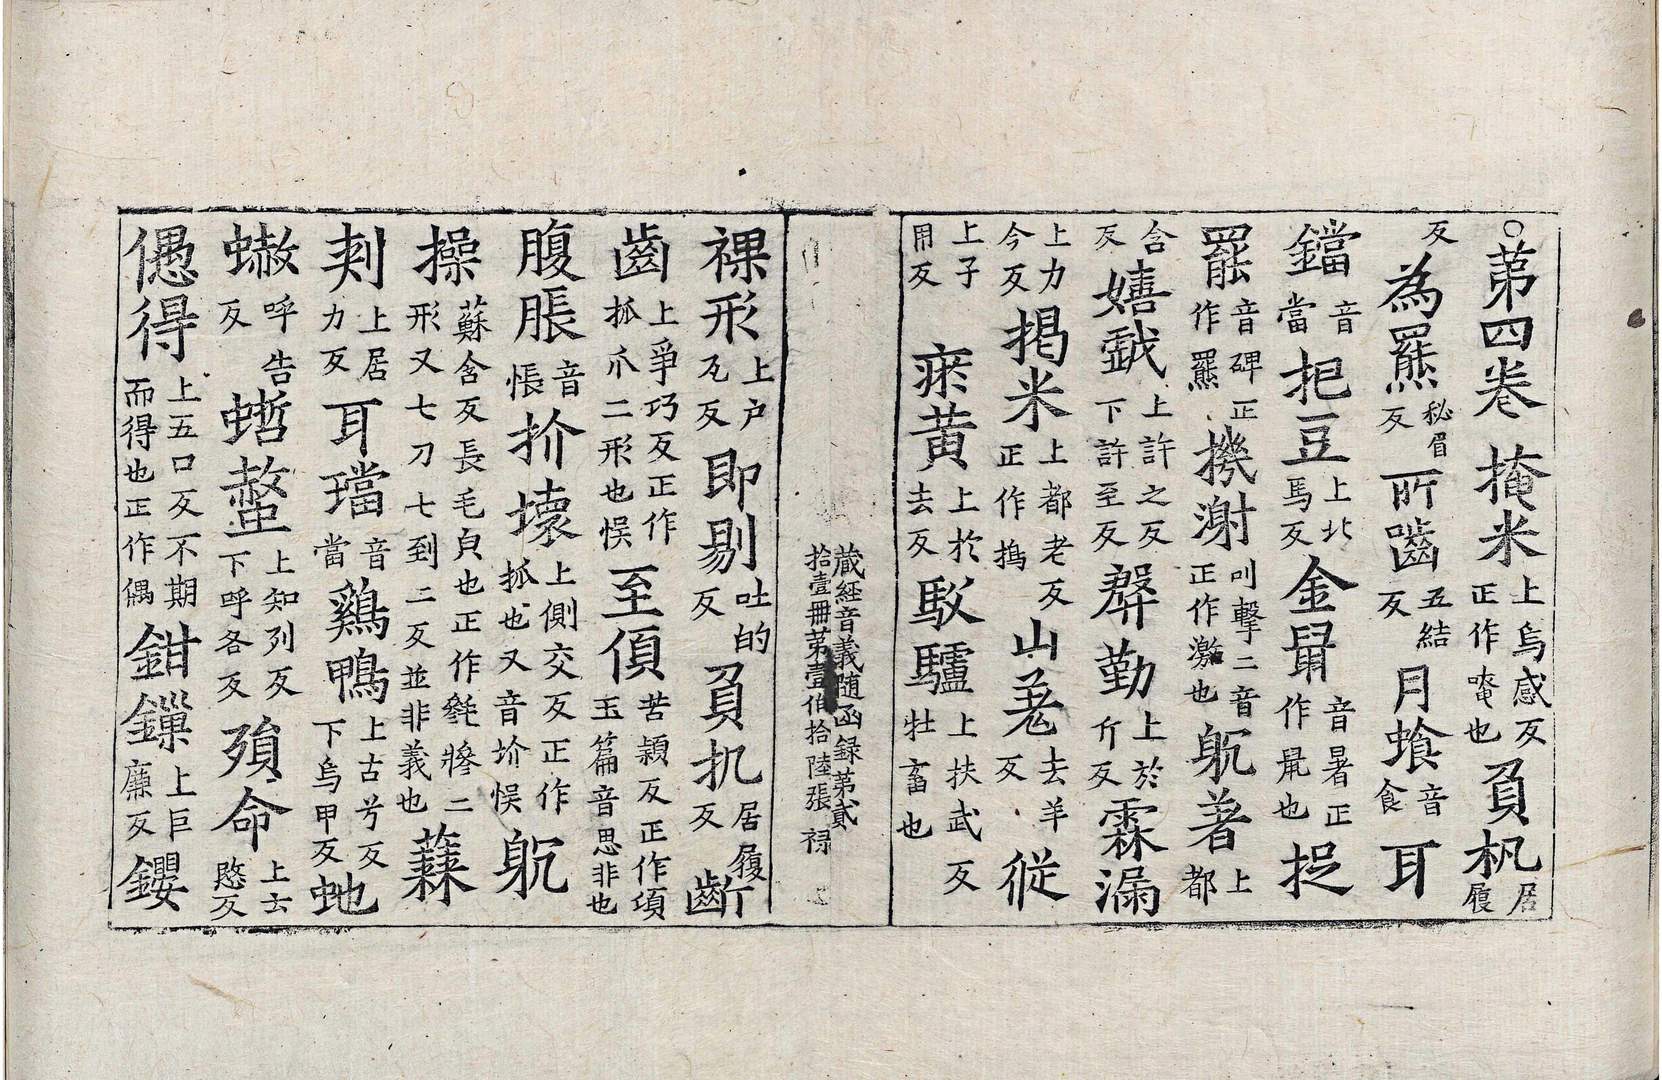 ○第四卷 掩米上烏感反正作唵也負杋居履
反為羆秘眉反所嚙五結反月蝕音食耳
鐺音當把豆上北馬反金鼠音暑正作鼠也捉
罷音碑正作羆撽謝叫擊二音正作激也躭著上都
含反嬉戱上許之反下許至反㝷勤上於斤反霖漏
上力今反搗米上都老反正作搗山羌去羊反㞷
上子用反 瘀黃上於去反馭驢上扶武反牡畜也
藏經音義随函録第貳
拾壹冊第壹伯拾陸張 禄
裸形上户瓦反即剔吐的反負机居履反齗
齒上爭巧反正作抓爪二形也悮至傾苦穎反正作頃玉篇音思非也
腹脹音悵扴壞上側交反正作抓也又音圿悮躭
操蘇含反長毛皃也正作毿㣓二形又七刀七到二反並非義也䕬
刾上居力反耳璫音當鷄鴨上古兮反下烏甲反虵
螫呼告反蜇螫上知列反下呼各反殞命上云愍反
偶得上五口反不期而得也正作偶鉗鏁上巨廉反鑍